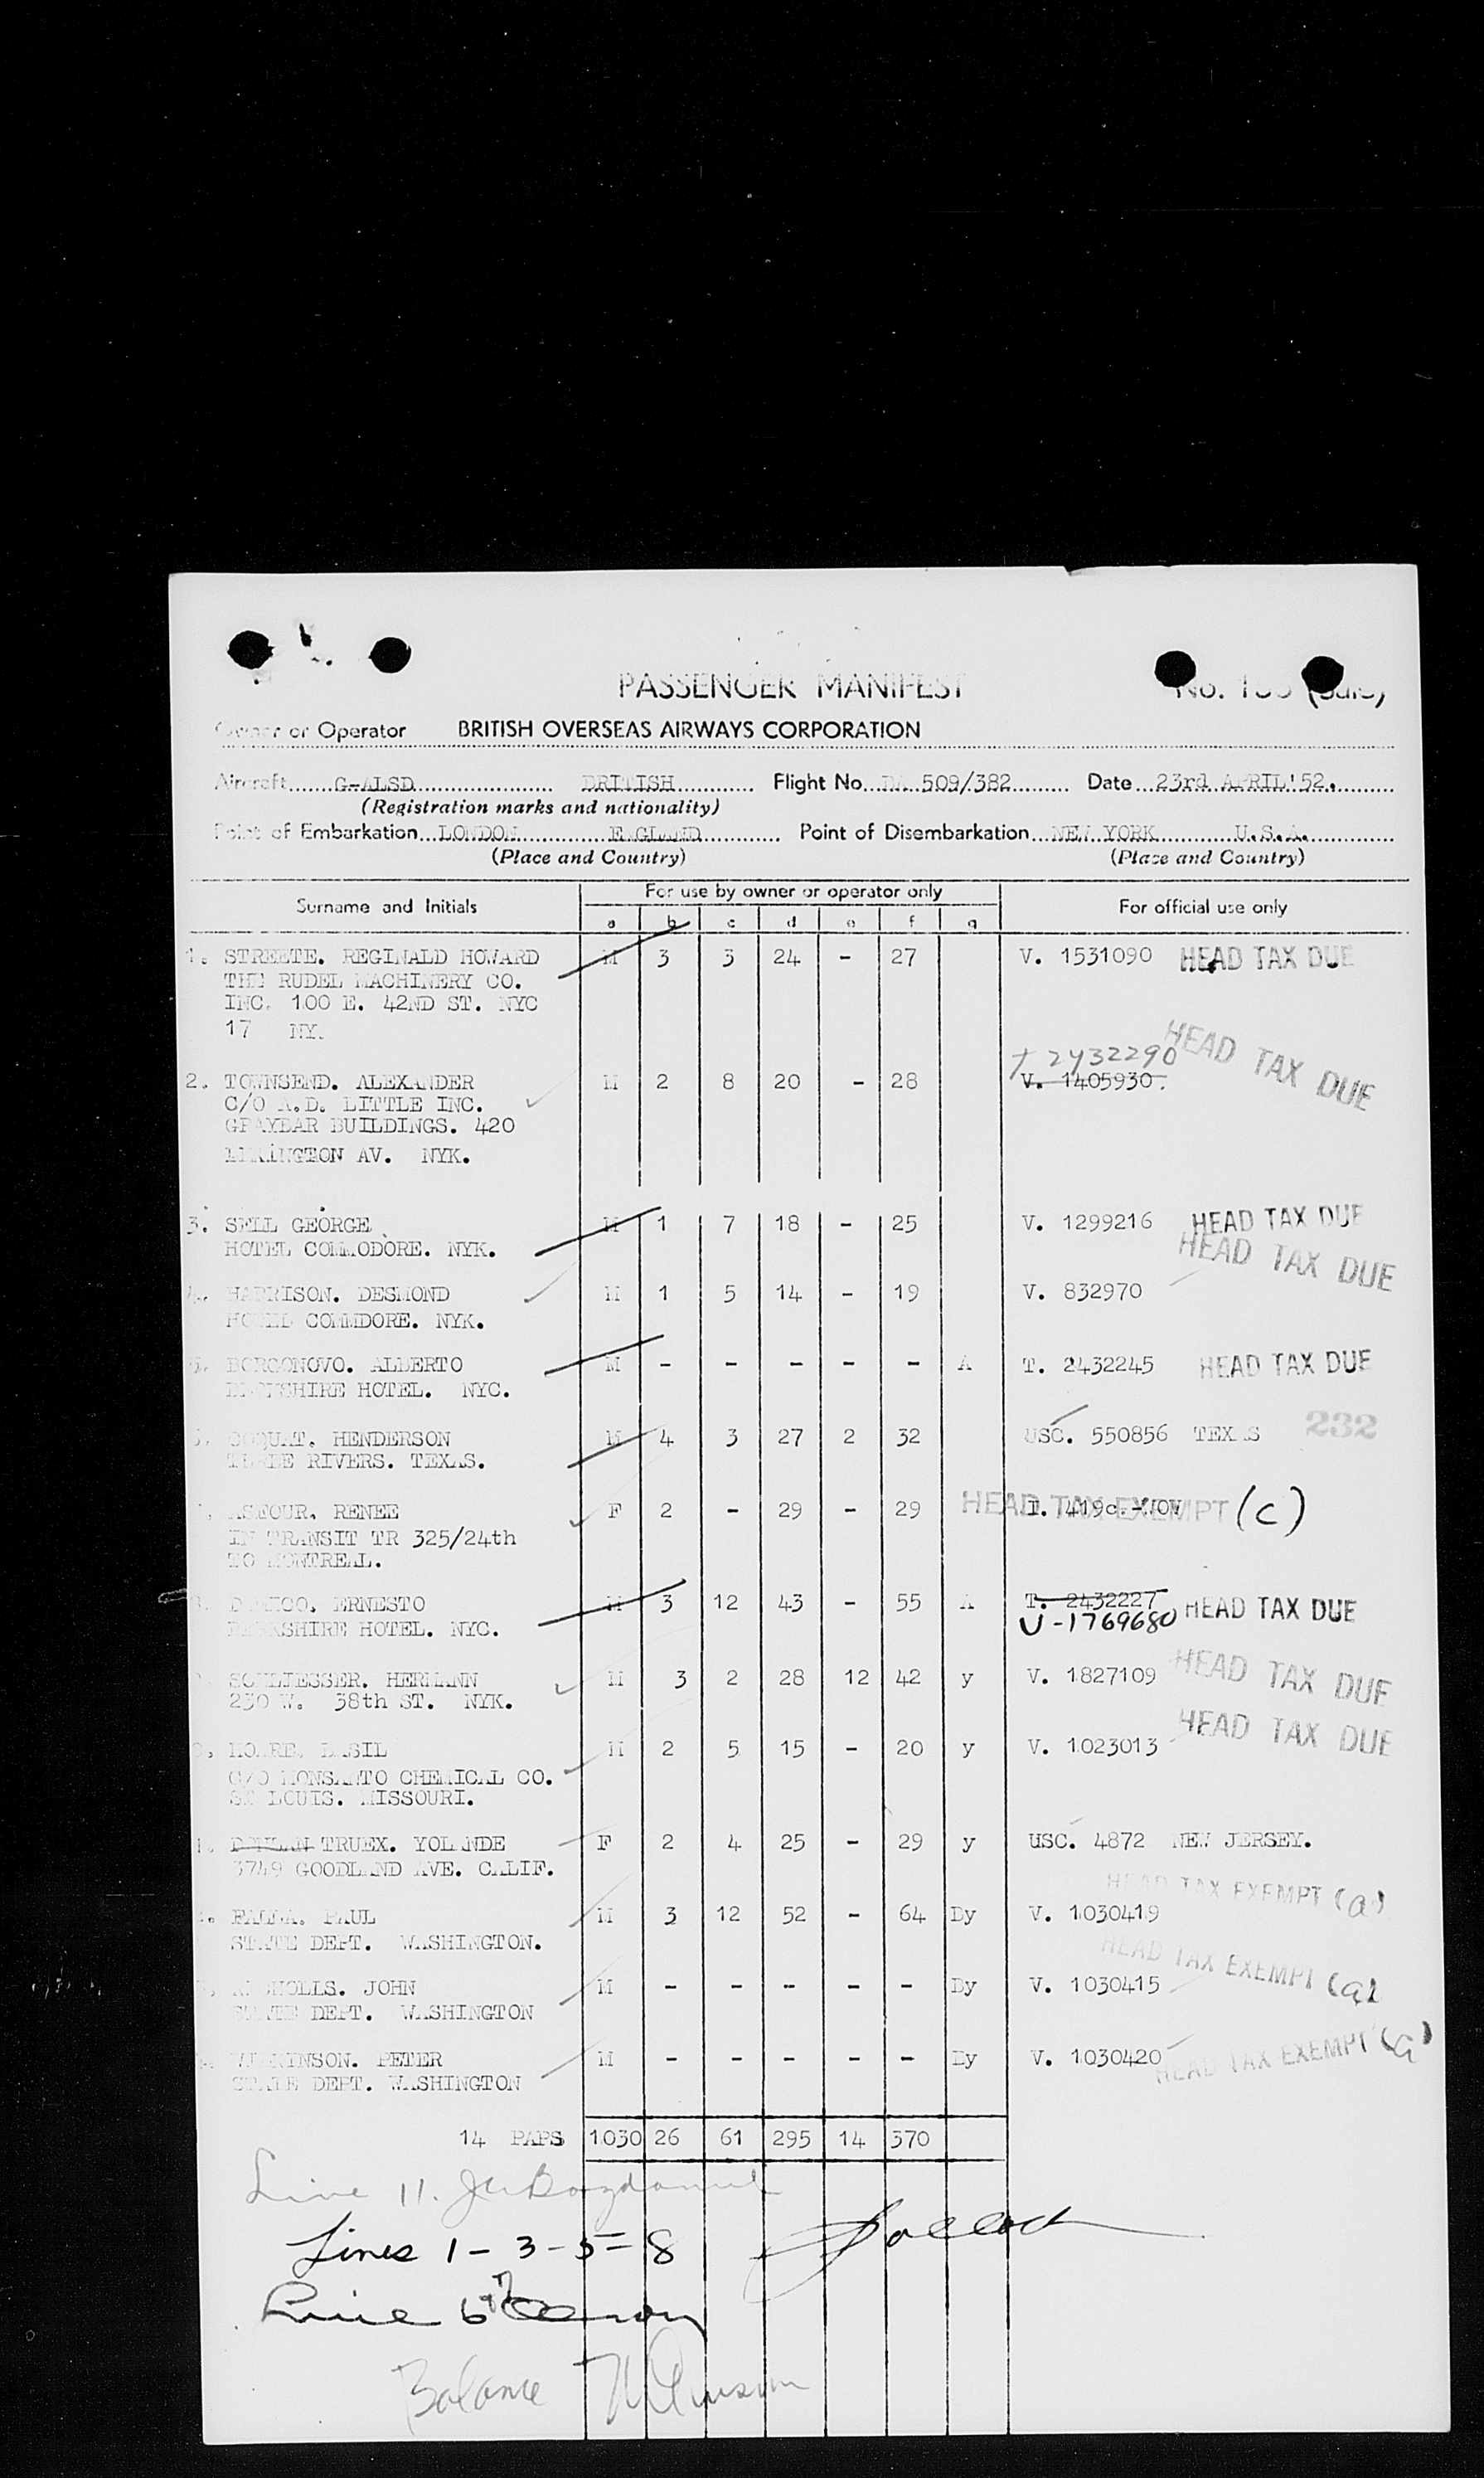 PASSENGER MANIFEST No.
Owner or Operator BRITISH OVERSEAS AIRWAYS CORPORATION
Aircraft G-ALSD BRITISH Flight No. 509/382 Date 23rd APRIL'52.
(Registration marks and nationality)
Point of Embarkation LONDON ENGLAND Point of Disembarkation NEW YORK U.S.A.
(Place and Country) (Place and Country)
Surname and Initials For use by owner or operator only For official use only
a b c d e f g
1. STREETE. REGINALD HOWARD M 3 3 24 - 27 V. 1531090 HEAD TAX DUE
THE RUDEL MACHINERY CO.
INC. 100 E. 42ND ST. NYC
17 NY.
T 2432290 HEAD TAX DUE
2. TOWNSEND. ALEXANDER M 2 8 20 - 28 V. 1405930.
C/O A.D. LITTLE INC.
GRAYBAR BUILDINGS. 420
LEXINGTON AV. NYK.
3. SELL GEORGE M 1 7 18 - 25 V. 1299216 HEAD TAX DUE
HOTEL COMMODORE. NYK. HEAD TAX DUE
4. HARRISON. DESMOND M 1 5 14 - 19 V. 832970
HOTEL COMMDORE. NYK.
5. BORGONOVO. ALBERTO M - - - - - A T. 2432245 HEAD TAX DUE
HOTEL. NYC.
HENDERSON M 4 3 27 2 32 USC. 550856 TEXAS 232
RIVERS. TEXAS.
RENEE F 2 - 29 - 29 HEAD TAX EXEMPT (c)
IN TRANSIT TR 325/24th
TO MONTREAL.
ERNESTO M 3 12 43 - 55 A T. 2432227
BERKSHIRE HOTEL. NYC. V-1769680 HEAD TAX DUE
SCHLIESSER. HERMANN M 3 2 28 12 42 y V. 1827109 HEAD TAX DUE
230 W. 38th ST. NYK.
BASIL M 2 5 15 - 20 y V. 1023013 HEAD TAX DUE
C/O MONSANTO CHEMICAL CO.
ST LOUIS. MISSOURI.
TRUEX. YOLANDE F 2 4 25 - 29 y USC. 4872 NEW JERSEY.
3749 GOODLAND AVE. CALIF.
PAUL M 3 12 52 - 64 Dy V. 1030419 HEAD TAX EXEMPT (a)
STATE DEPT. WASHINGTON.
NICHOLLS. JOHN M - - - - - Dy V. 1030415 HEAD TAX EXEMPT (a)
STATE DEPT. WASHINGTON
WILKINSON. PETER M - - - - - Dy V. 1030420 HEAD TAX EXEMPT (a)
STATE DEPT. WASHINGTON
14 PAPS 1030 26 61 295 14 370
Line 11.
Lines 1 - 3 - 5 = 8
Line 6
Balance